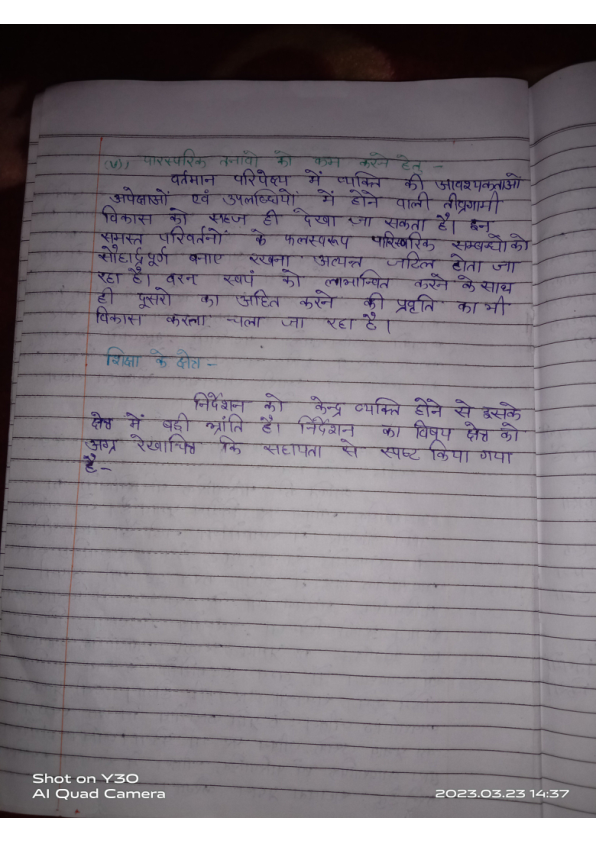 (v), पारस्परिक तनावो को कम करने हेतु -
वर्तमान परिपेक्ष्य में व्यक्ति की आवश्यकताओं
अपेक्षाओं एवं उपलब्धियों में होने वाली तीव्रगामी
विकास को सहज ही देखा जा सकता है। इन
समस्त परिवर्तनों के फलस्वरूप पारिस्परिक सम्बन्धों को
सौहार्द्रपूर्ण बनाए रखना अत्यन्त जटिल होता जा
रहा है। वरन स्वयं को लाभान्वित करने के साथ
ही दूसरो का अहित करने की प्रवृति का भी
विकास करता चला जा रहा है।
शिक्षा के क्षेत्र -
निर्देशन को केन्द्र व्यक्ति होने से इसके
क्षेत्र में बडी भ्रांति है। निर्देशन का विषय क्षेत्र को
अग्र रेखाचित्र कि सहायता से स्पष्ट किया गया
है -
Shot on Y30
AI Quad Camera
2023.03.23 14:37